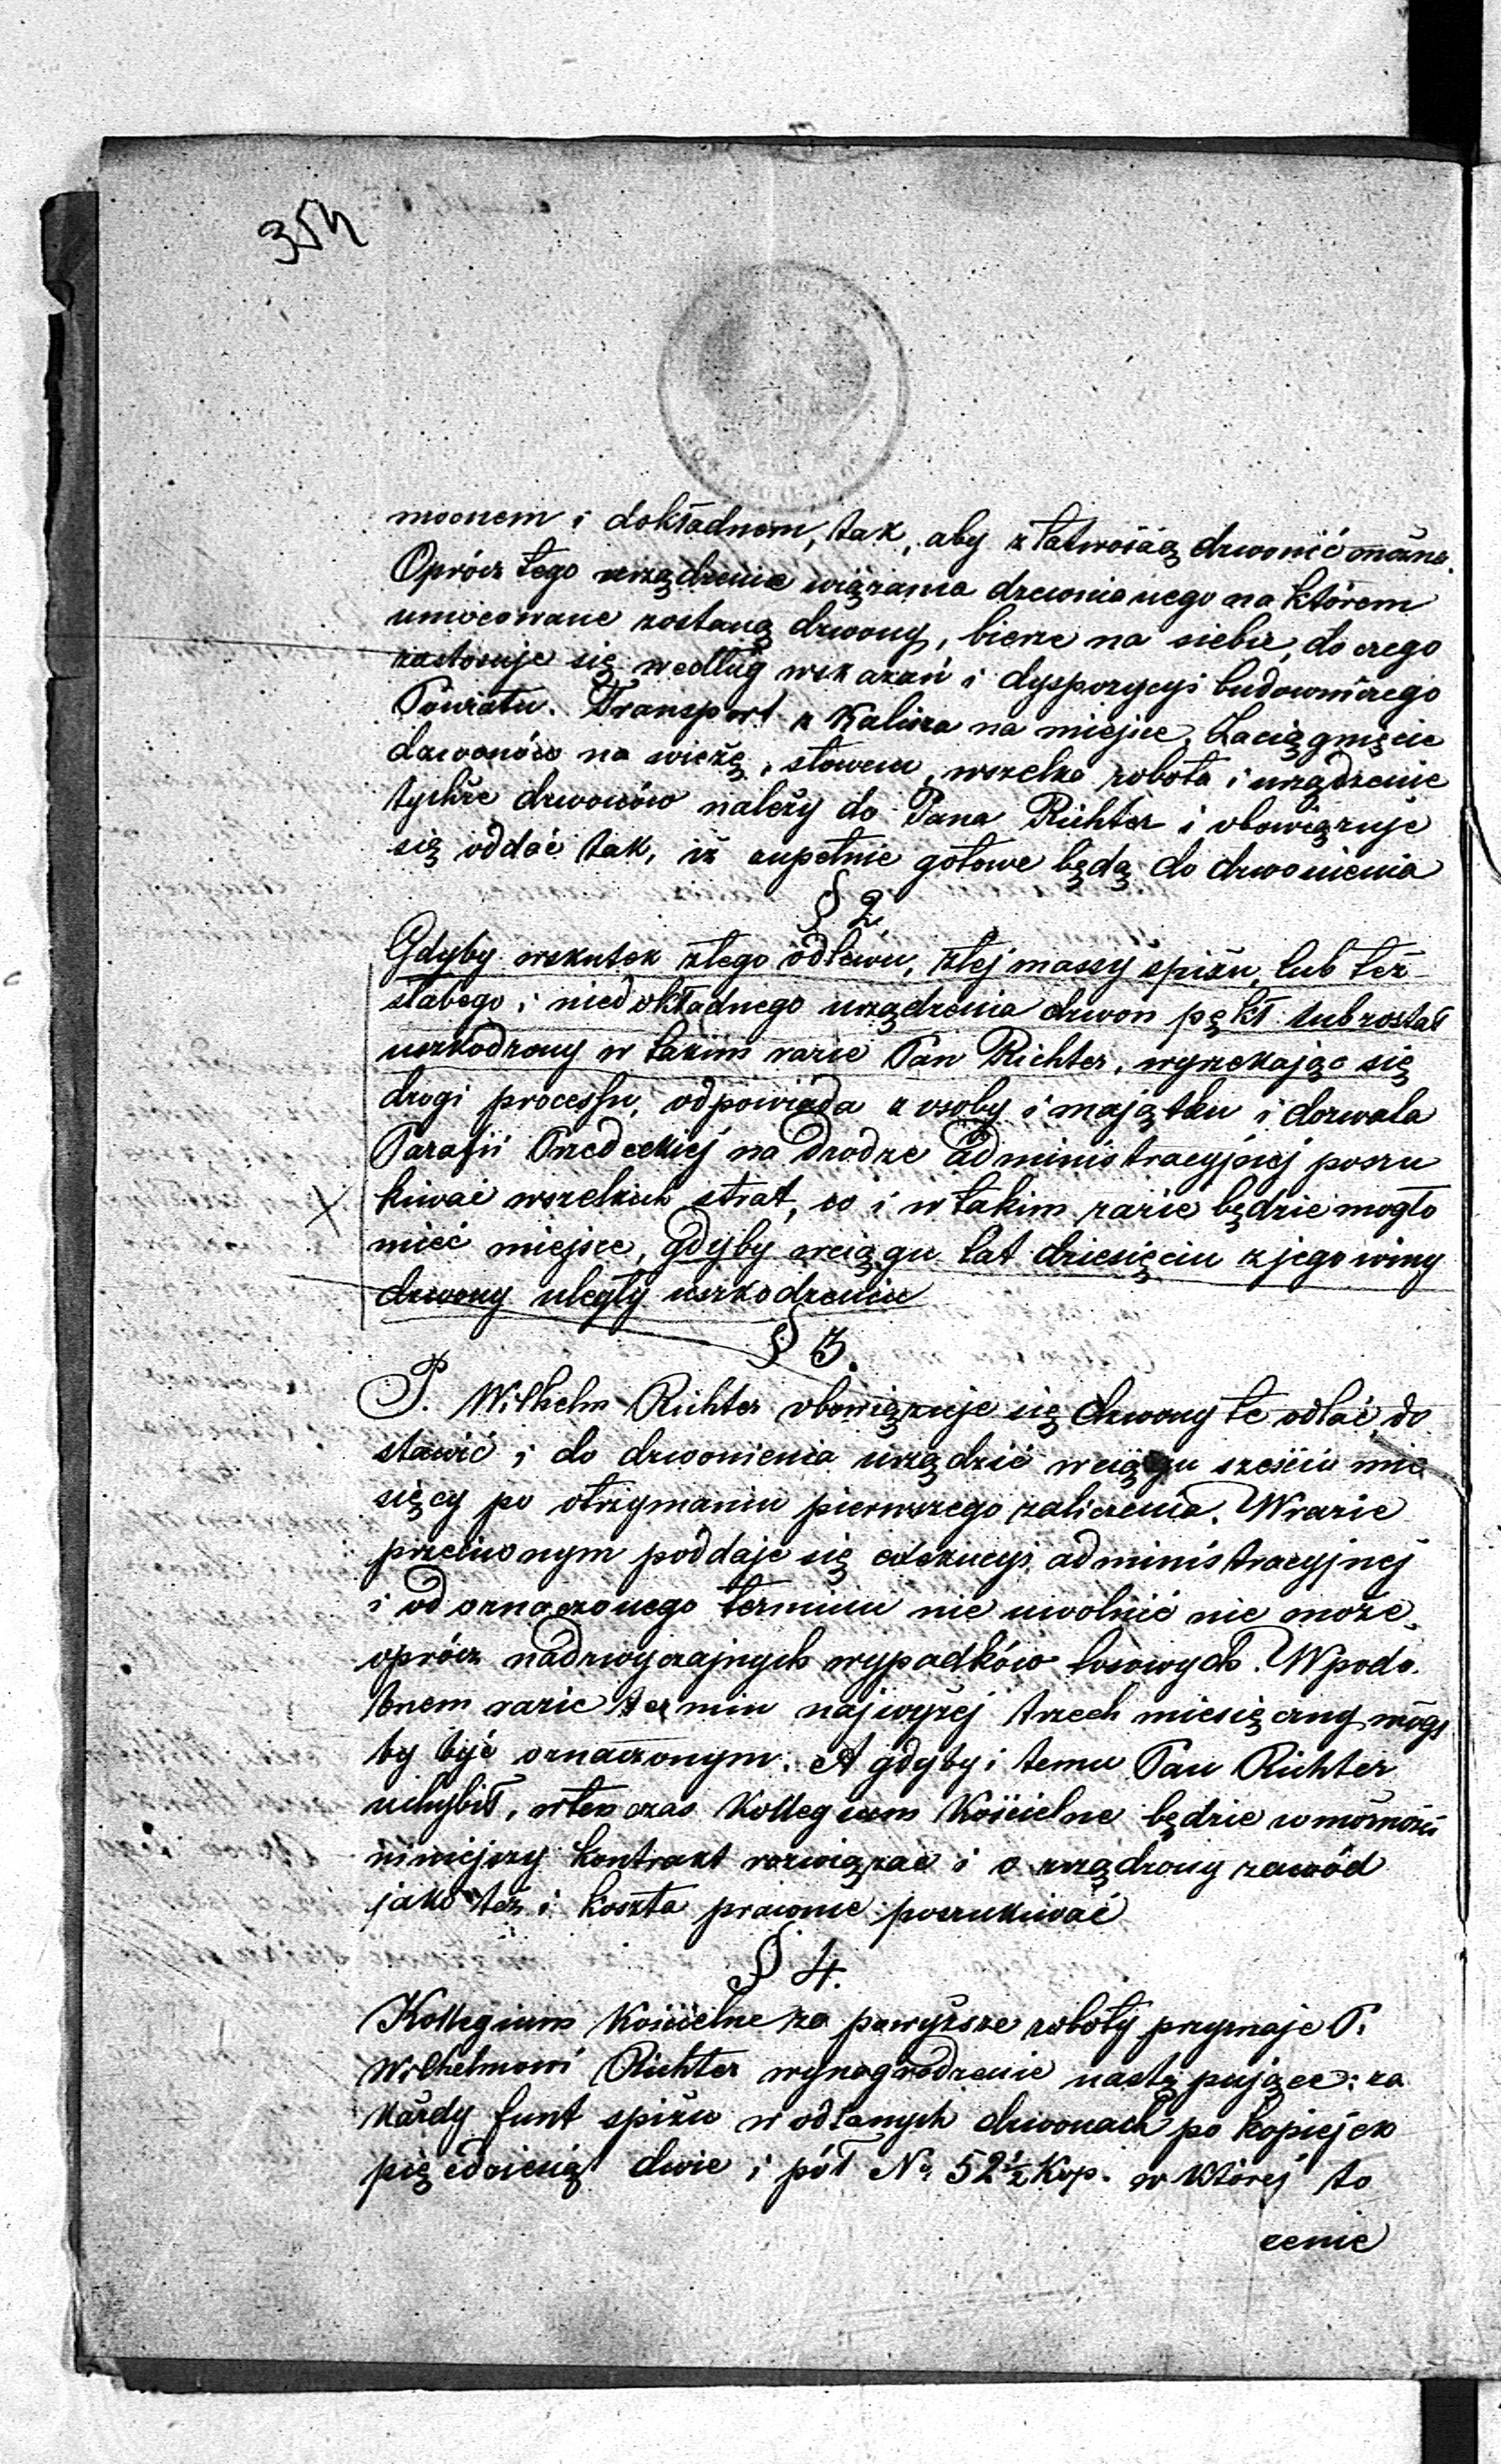 354
mocnem i dokładnem, tak, aby z łatwością dzwonić można.
Oprócz tego urządzenie wiązania drewnianego na którem
umocowane zostaną dzwony, bierze na siebie, do czego
zastosuje się według wskazań i dyspozycyi budowniczego
Powiatu. Transport z Kalisza na miejsce, Zaciągnięcie
dzwonów na wieżę, słowem, wszelka robota i urządzenie
tychże dzwonów należy do Pana Richter i obowiązuje
się oddać tak, iż zupełnie gotowe będą do dzwonienia
§ 2
Gdyby wskutek złego odlewu, złej massy spiżu, lub też
słabego i niedokładnego urządzenia dzwon pękł lub został
uszkodzony w takim razie Pan Richter, wyrzekając się
drogi processu, odpowiada z osoby i majątku i dozwala
Parafii Przedeckiej na drodze administracyjnej poszu
kiwać wszelkich strat, co i w takim razie będzie mogło
mieć miejsce, gdyby wciągu lat dziesięciu z jego winy
dzwony uległy uszkodzeniu
§ 3.
P. Wilhelm Richter obowiązuje się dzwony te odlać do
stawić i do dzwonienia urządzić wciągu sześciu mie
sięcy po otrzymaniu pierwszego zaliczenia. Wrazie
przeciwnym poddaje się exekucyi administracyjnej
i od oznaczonego terminu nie uwolnić nie może,
oprócz nadzwyczajnych wypadków losowych. Wpodo
bnem razie termin najwyżej trzech miesięczny mógł
by być oznaczonym. A gdyby i temu Pan Richter
uchybił, wtenczas Kollegium Kościelne będzie w możności
niniejszy kontrakt rozwiązać i o zrządzony zawód
jako też i koszta prawnie poszukiwać
§ 4.
Kollegium Kościelne za powyższe roboty przyznaje P.
Wilhelmowi Richter wynagrodzenie następujące: za
każdy funt spiżu w odlanych dzwonach po kopiejek
pięćdziesiąt dwie i pół No 52½ Kop. w której to
cenie